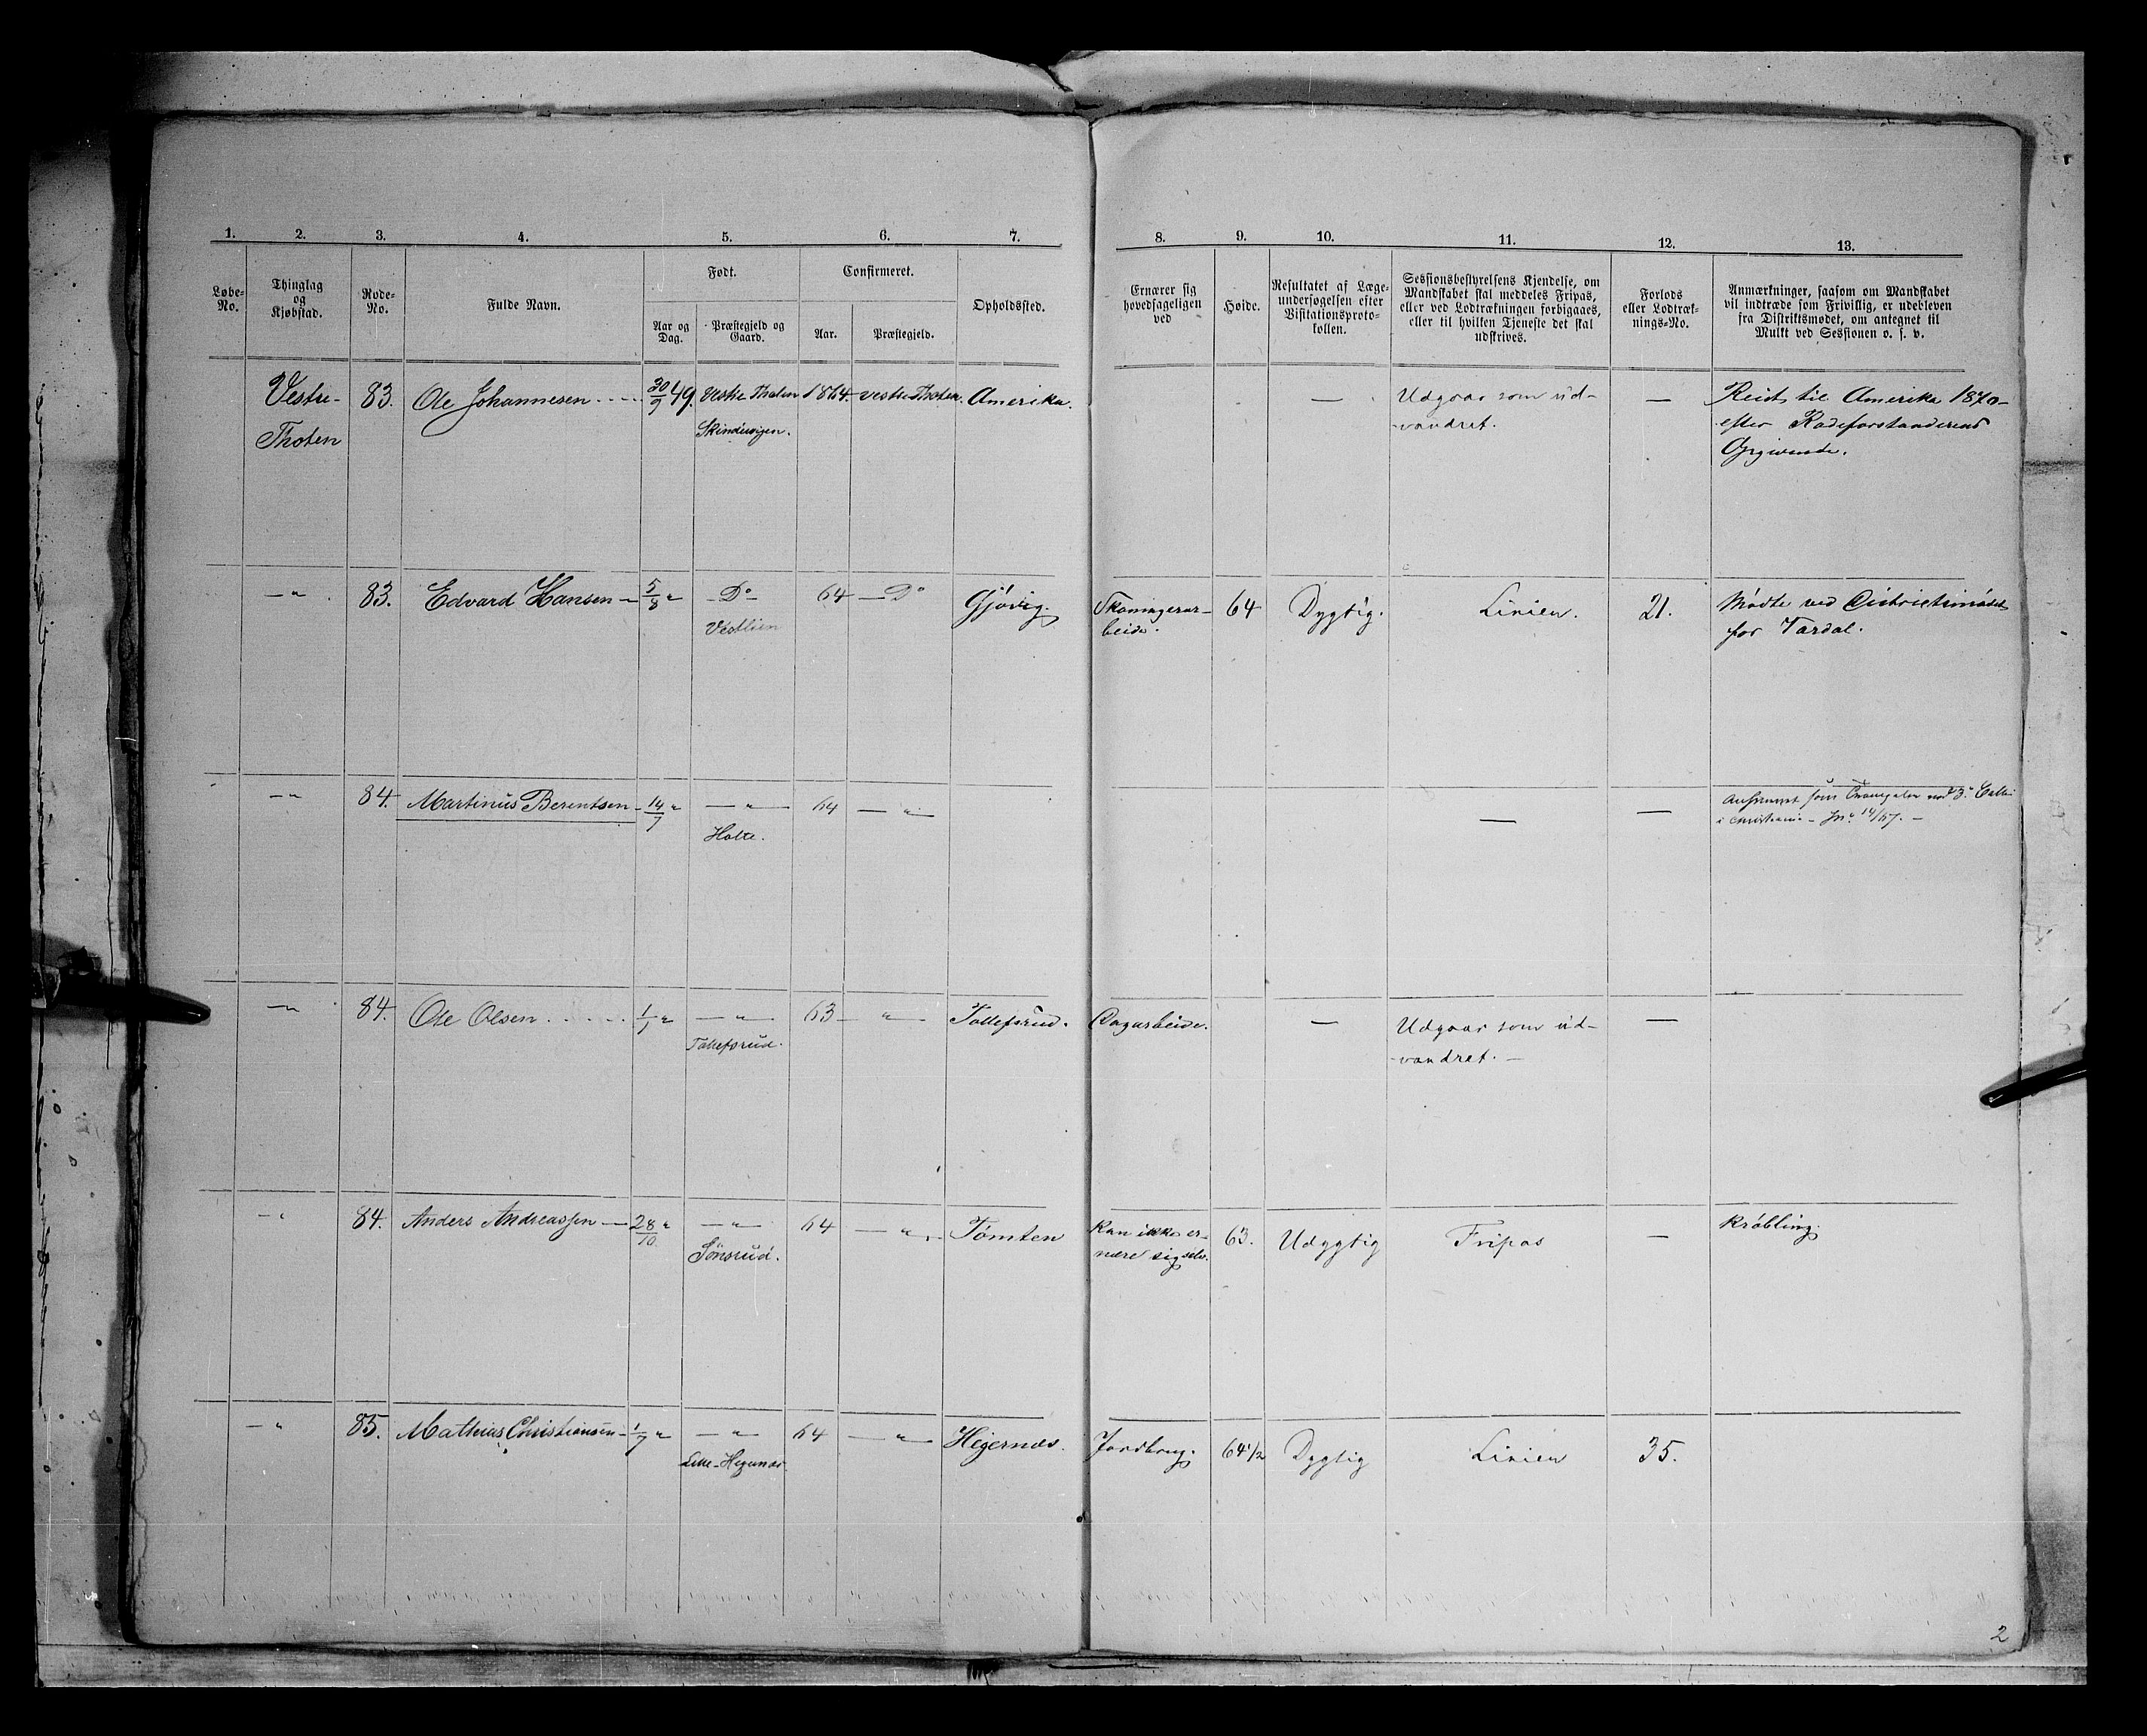 1. 2. 3. 4. 5. 6. 7. 8. 9. 10. 11. 12. 13.
Løbe-
No.
Thinglag
og
Kjøbstad.
Rode-
No.
Fulde Navn.
Født.
Aar og
Dag.
Præstegjeld og
Gaard.
Confirmeret.
Aar.
Præstegjeld.
Opholdssted.
Ernærer sig
hovedsageligen
ved
Høide.
Resultatet af Læge-
undersøgelsen efter
Visitationsproto-
kollen.
Sessionsbestyrelsens Kjendelse, om
Mandskabet skal meddeles Fripas,
eller ved Lodtrækningen forbigaaes,
eller til hvilken Tjeneste det skal
udskrives.
Forlods
eller Lodtræk-
nings-No.
Anmærkninger, saasom om Mandskabet
vil indtræde som Frivillig, er udebleven
fra Distriktsmødet, om antegnet til
Mulkt ved Sessionen o. s. v.
Vestre- 83. Ole Johannesen 30/9 49. Vestre Thoten 1864. Vestre Thoten. Amerika. — Udgaar som ud- — Reist til Amerika 1870
Thoten Skindervigen. vandret. efter Rodeforstanderens
Opgivende.
—"— 83. Edvard Hansen — 5/8 " Do 64 — Do Gjøvig. Skomagerar- 64 Dygtig. Linien. 21. Mødte ved Districtsmødet
Vestlien beide. for Vardal.
—"— 84. Martinus Berentsen — 14/7 " —"— 64 —"— — — Antennet som
Holte. i Christiania
—"— 84. Ole Olsen 1/1 " —"— 63 —"— Tollefsrud. Dagarbeide. — Udgaar som ud- —
Tollefsrud. vandret. —
—"— 84. Anders Andreassen — 28/10 " —"— 64 —"— Tømten Kan ikke er- 63. Udygtig Fripas — Krøbling.
Sønsrud. nære sig selv.
—"— 85. Mathias Christiansen — 1/7 " —"— 64 —"— Hegernæs. Jordbrug. 64 1/2 Dygtig Linien 35.
Lille-Hegernæs.
2